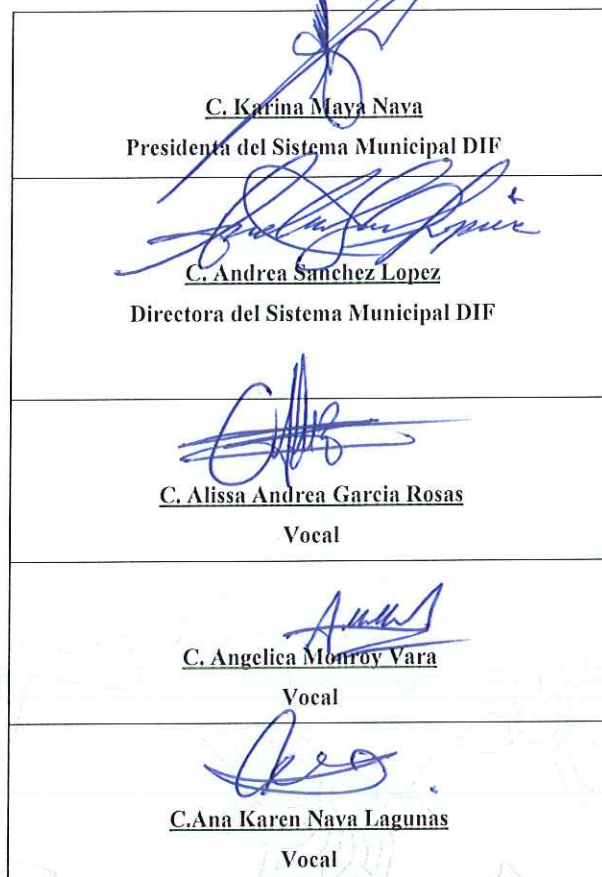 C. Karina Maya Nava
Presidenta del Sistema Municipal DIF
C. Andrea Sanchez Lopez
Directora del Sistema Municipal DIF
C. Alissa Andrea Garcia Rosas
Vocal
C. Angelica Monroy Vara
Vocal
C.Ana Karen Nava Lagunas
Vocal